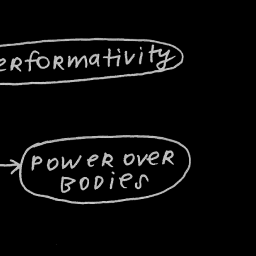 erformativity
POWER OVER
BODIES